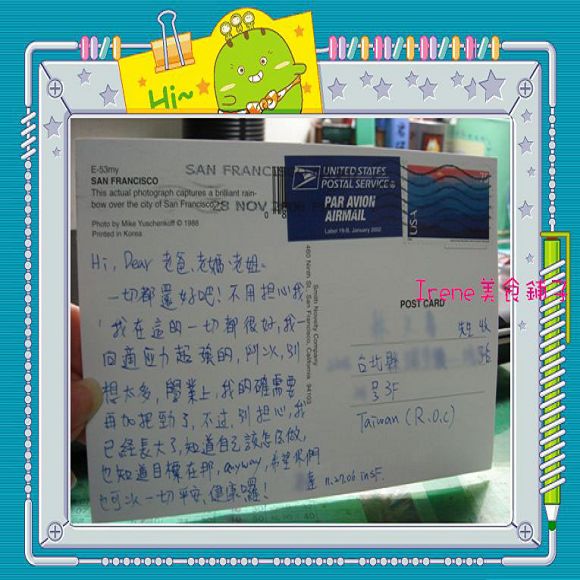 Hi~
E-53my
SAN FRANCISCO
This actual photograph captures a brilliant rain-
bow over the city of San Francisco.
Photo by Mike Yuschenkoff © 1988
Printed in Korea
SAN FRANCIS
28 NOV 2006 PM
UNITED STATES
POSTAL SERVICE
PAR AVION
AIRMAIL
Label 19-B, January 2002
USA
Hi, Dear 老爸、老媽、老姐
一切都還好吧！不用担心我
我在這的一切都很好，我
向適应力超強的，所以，別
想太多，學業上，我的確需要
再加把勁了，不过，別担心，我
已經長大了，知道自己該怎么做，
也知道目標在那，anyway，希望你們
也可以一切平安、健康囉！
11.27.06 in SF.
Smith Novelty Company
460 Ninth St., San Francisco, California 94103
POST CARD
先生 收
台北縣
號3F
Taiwan (R.O.C)
Irene美食鋪子